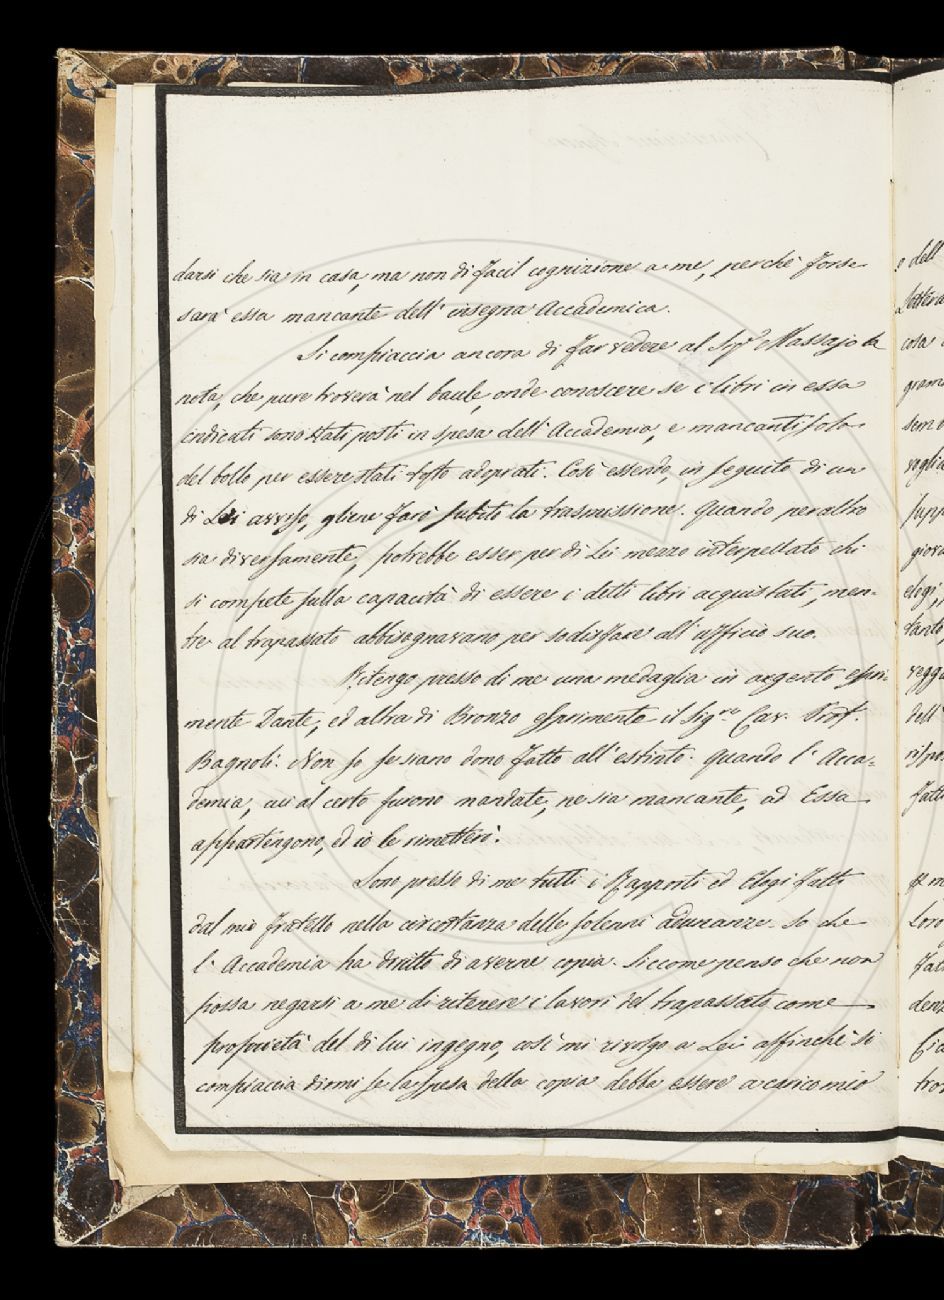 darsi che sia in casa, ma non di facil cognizione a me, perchè forse
sarà essa mancante dell' insegna Accademica.
Si compiaccia ancora di far vedere al Sigr Massajo la
nota, che pure troverà nel baule, onde conoscere se i libri in essa
indicati sono stati posti in spesa dell' Accademia, e mancanti solo
del bollo per essere stati tosto adoprati. Così essendo, in seguito di un
di Lei avviso, gliene farò subito la trasmissione. Quando per altro
sia diversamente, potrebbe esser per di Lei mezzo interpellato chi
si compete sulla capacità di essere i detti libri acquistati, men-
tre al trapassato abbisognavano per sodisfare all' uffizio suo.
Ritengo presso di me una medaglia in argento espri-
mente Dante, ed altra di Bronzo esprimente il Sigre Cav. Prof.
Bagnoli. Non so se siano dono fatto all' estinto. Quando l' Acca-
demia, cui al certo furono mandate, ne sia mancante, ad Essa
appartengono, ed io le rimetterò.
Sono presso di me tutti i Rapporti ed Elogi fatti
dal mio fratello nella circostanza delle solenni adunanze. So che
l' Accademia ha dritto di averne copia. Siccome penso che non
possa negarsi a me di ritenere i lavori del trapassato come
proprietà del di lui ingegno, così mi rivolgo a Lei affinchè si
compiaccia dirmi se la spesa della copia debba essere a carico mio